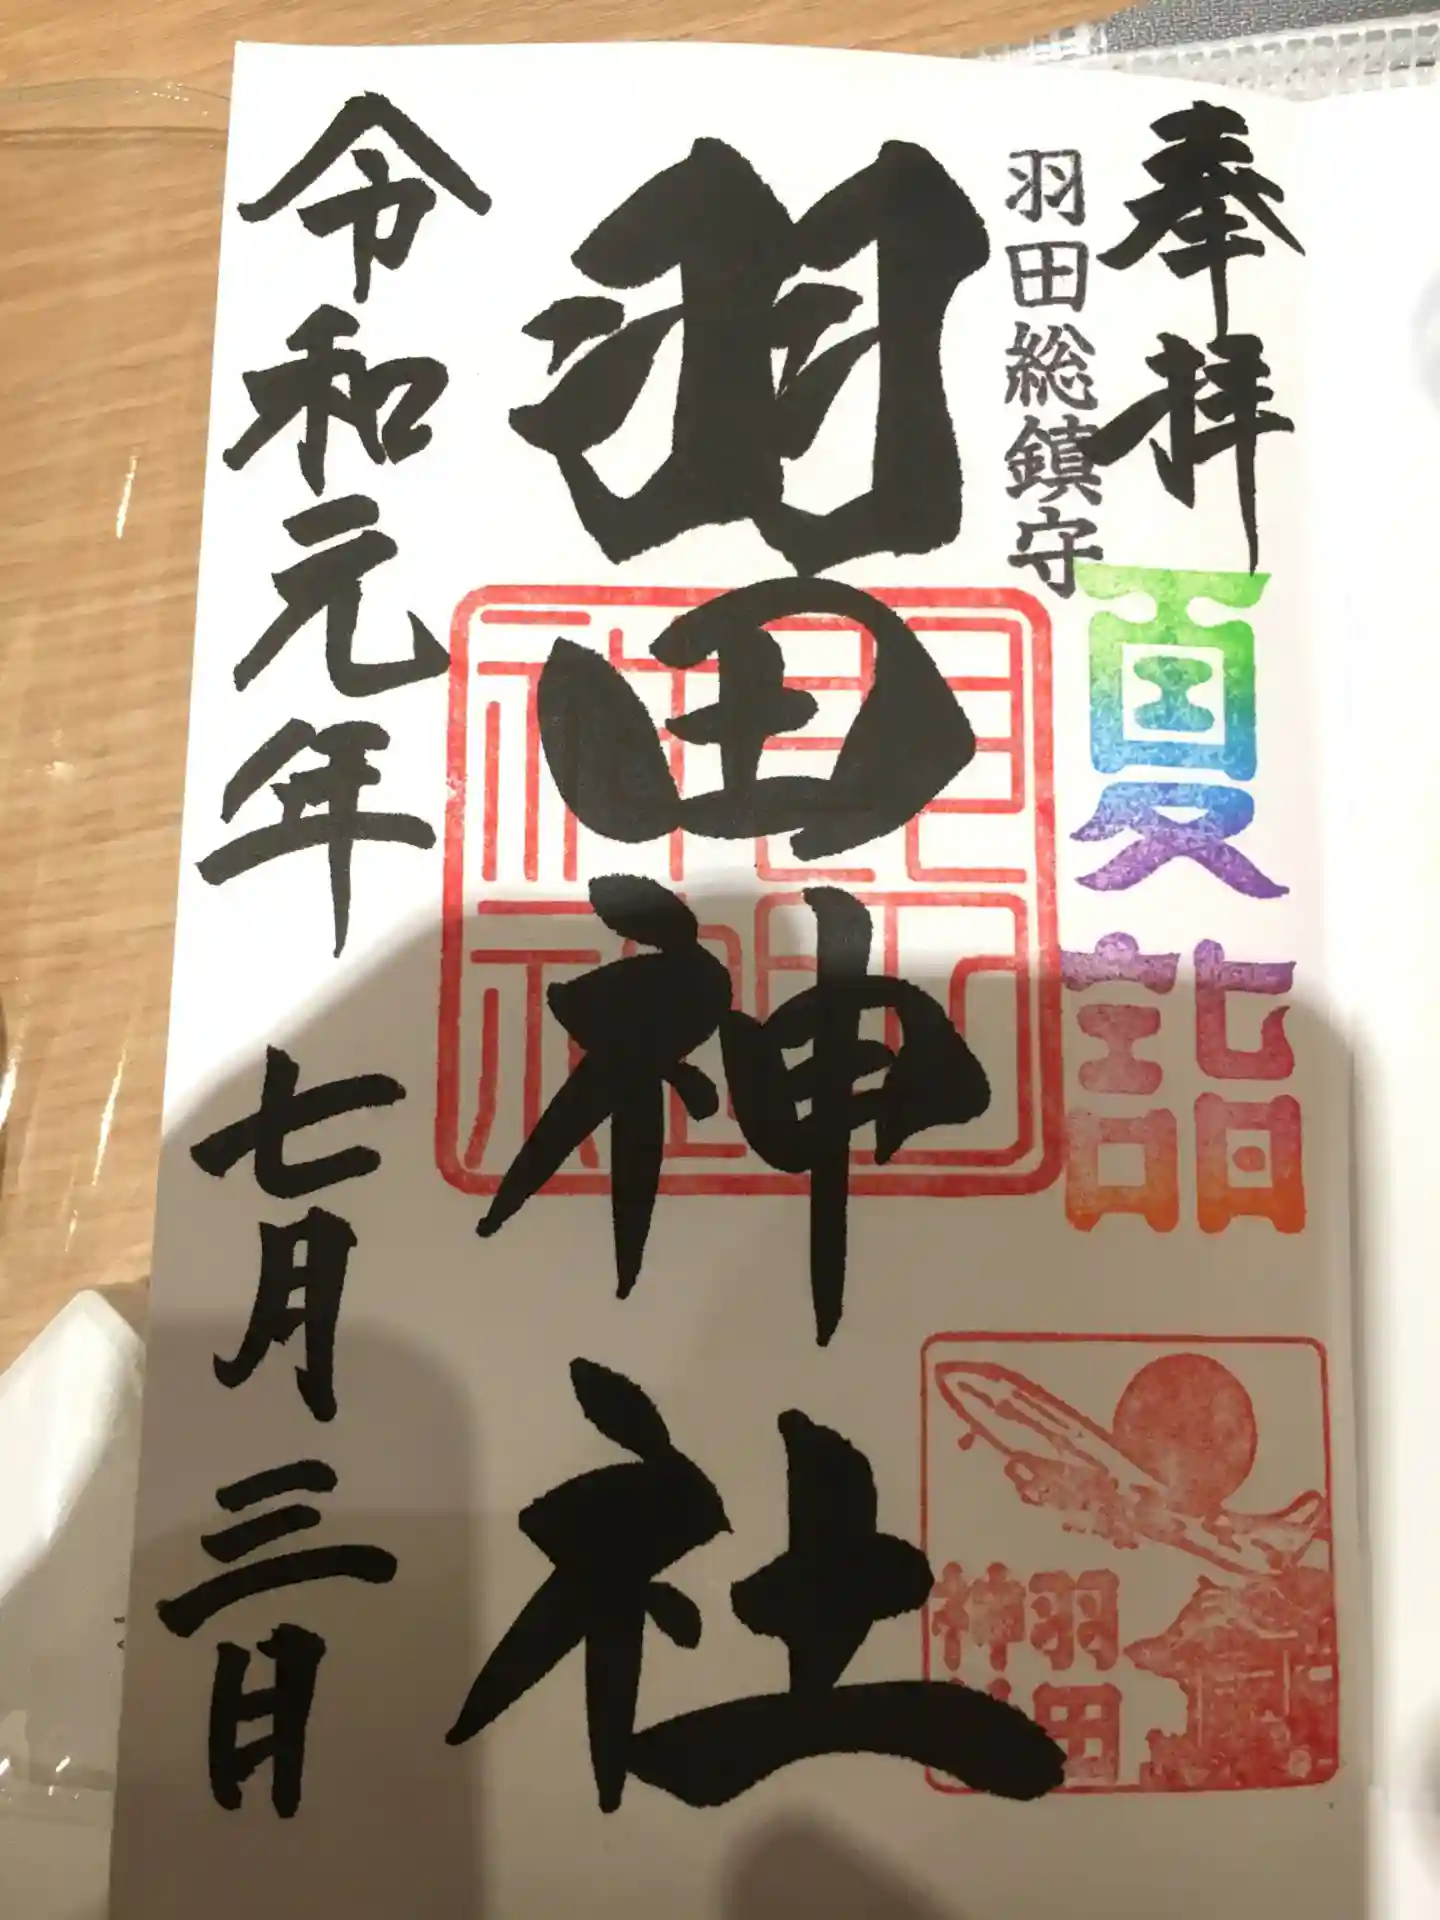 奉拝
夏詣
羽田総鎮守
羽田神社
羽田
神社
令和元年 七月三日